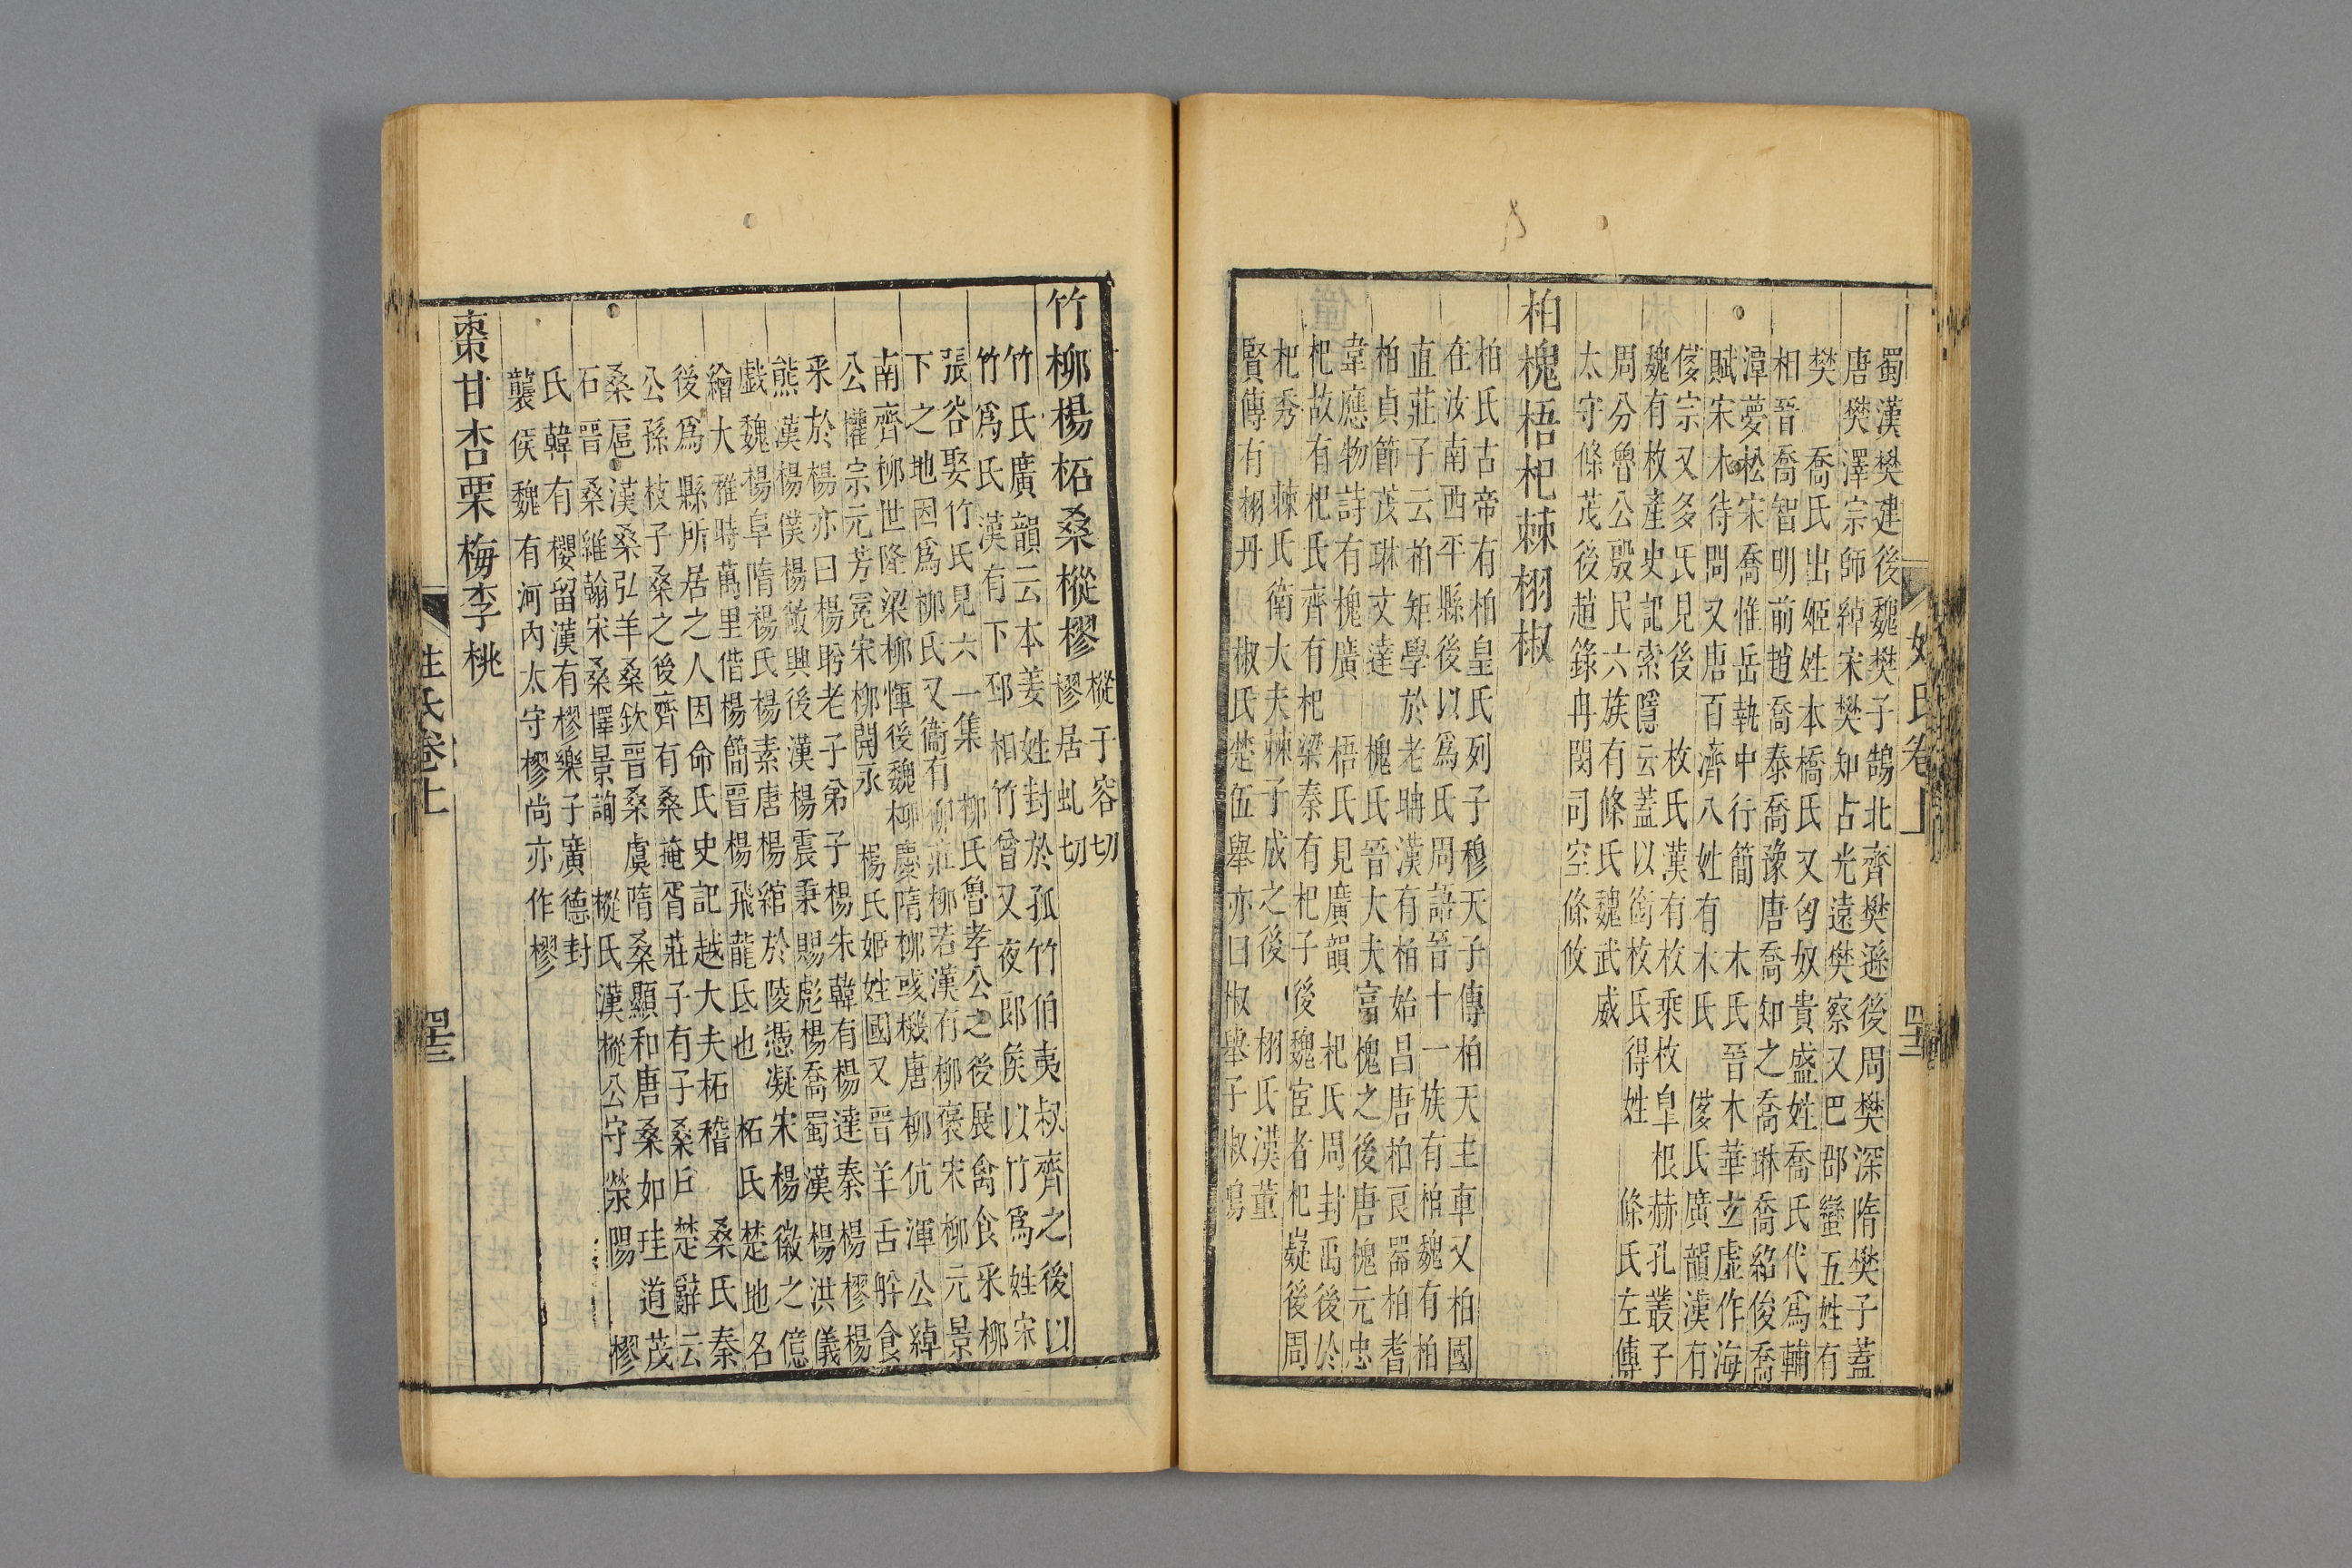 蜀漢樊建後魏樊子鵠北齊樊遜後周樊深隋樊子蓋
唐樊澤宗師綽宋樊知古光遠樊察又巴郡蠻五姓有
樊　喬氏出姬姓本橋氏又匈奴貴盛姓喬氏代爲輔
相晉喬智明前趙喬泰喬豫唐喬知之喬琳喬紹俊喬
潭夢松宋喬惟岳執中行簡　木氏晉木華玄虛作海
賦宋木待問又唐百濟八姓有木氏　僂氏廣韻漢有
僂宗又多氏見後　枚氏漢有枚乘枚臯根赫孔叢子
魏有枚產史記索隱云蓋以銜枚氏得姓　條氏左傳
周分魯公殷民六族有條氏魏武威
太守條茂後趙錄冉閔司空條攸
柏槐梧杞棘栩椒
柏氏古帝有柏皇氏列子穆天子傳柏天主車又柏國
在汝南西平縣後以爲氏周語晉十一族有柏魏有柏
直莊子云柏矩學於老聃漢有柏始昌唐柏良器柏耆
柏貞節茂琳文達　槐氏晉大夫富槐之後唐槐元忠
韋應物詩有槐廣　梧氏見廣韻　杞氏周封禹後於
杞故有杞氏齊有杞梁秦有杞子後魏宦者杞嶷後周
杞秀　棘氏衛大夫棘子成之後　栩氏漢董
賢傳有栩丹　椒氏楚伍舉亦曰椒舉子椒鳴
姓氏卷上
竹柳楊柘桑樅樛
樅于容切
樛居虬切
竹氏廣韻云本姜姓封於孤竹伯夷叔齊之後以
竹爲氏漢有下邳相竹曾又夜郎侯以竹爲姓宋
張谷娶竹氏見六一集　柳氏魯孝公之後展禽食采柳
下之地因爲柳氏又衞有柳莊柳若漢有柳褒宋柳元景
南齊柳世隆梁柳惲後魏柳慶隋柳彧機唐柳伉渾公綽
公懽宗元芳冕宋柳開永　楊氏姬姓國又晉羊舌鮓食
采於楊亦曰楊肹老子弟子楊朱韓有楊達秦楊樛楊
熊漢楊僕楊敞興後漢楊震秉賜彪楊喬蜀漢楊洪儀
戲魏楊阜隋楊氏楊素唐楊綰於陵憑凝宋楊徽之億
繪大雅時萬里偕楊簡晉楊飛龍氐也　柘氏楚地名
後爲縣所居之人因命氏史記越大夫柘稽　桑氏秦
公孫枝子桑之後齊有桑掩胥莊子有子桑戶楚辭云
桑扈漢桑弘羊桑欽晉桑虞隋桑顯和唐桑如珪道茂
石晉桑維翰宋桑懌景詢　樅氏漢樅公守滎陽　樛
氏韓有樛留漢有樛樂子廣德封
襲侯魏有河內太守樛尚亦作樛
棗甘杏栗梅李桃
姓氏卷上